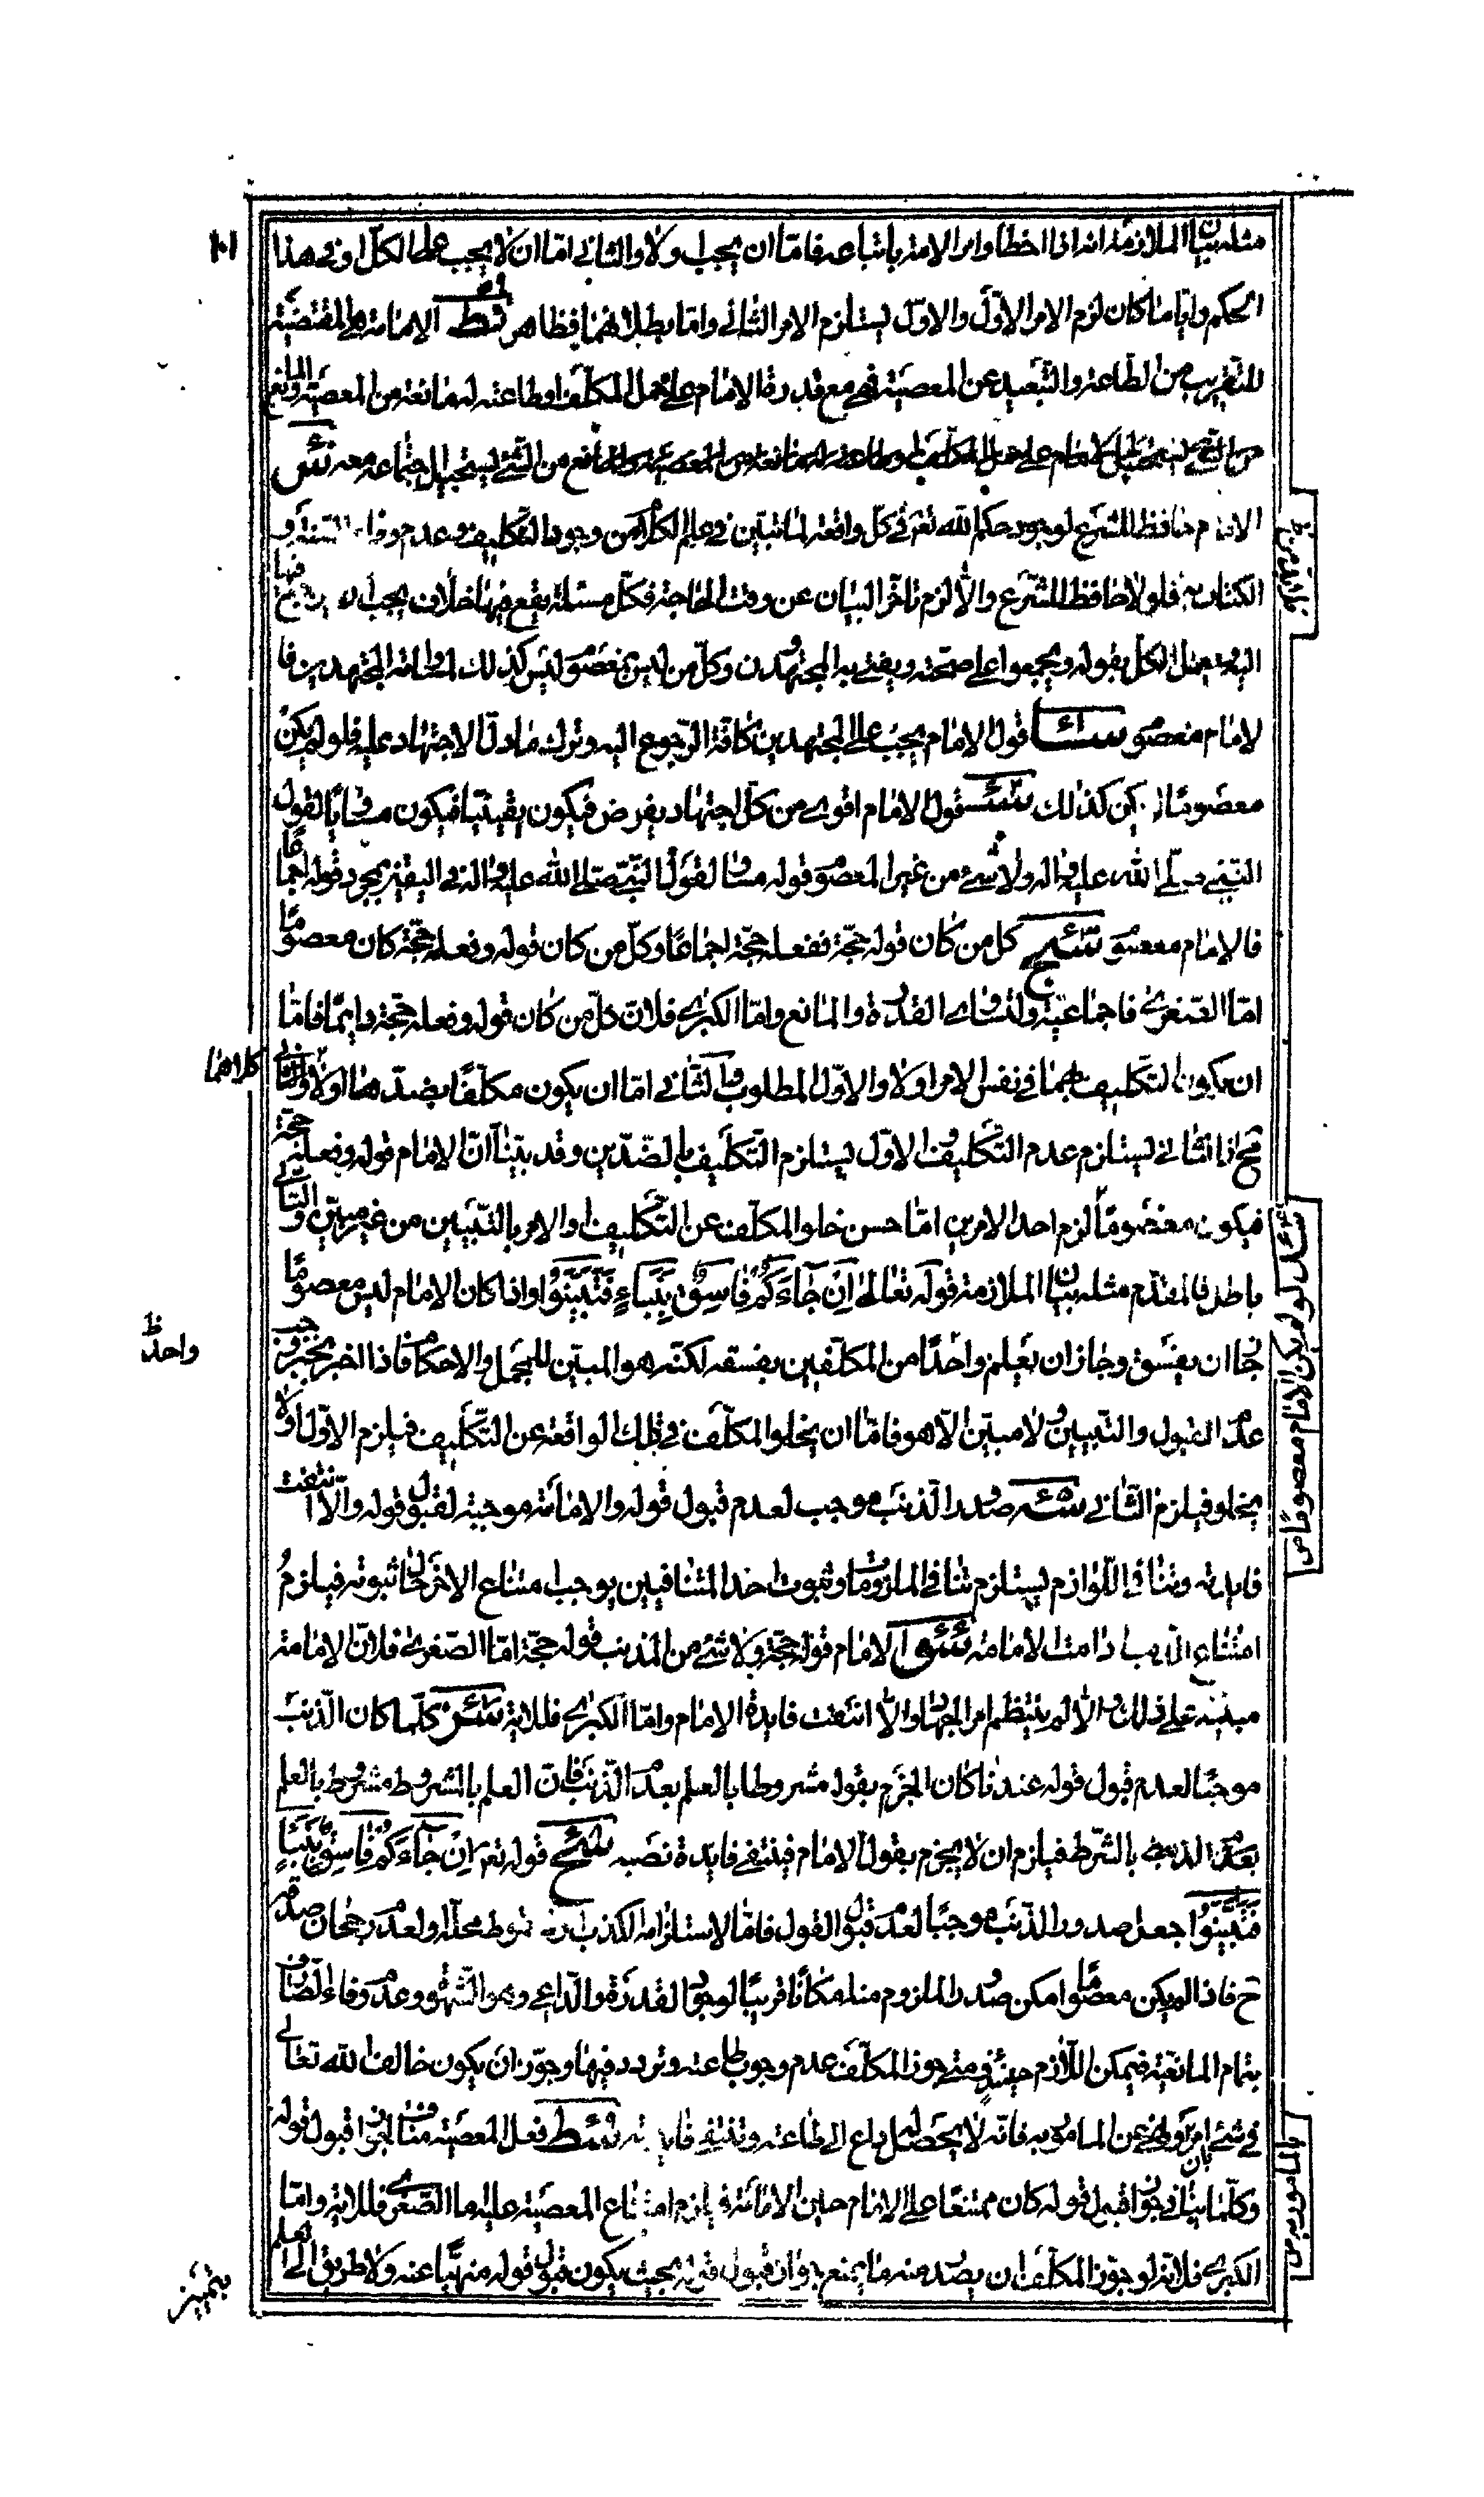 ١٠١
مثله بيان الملازمة انه اذا اخطا وامر الامة باتباعه فامّا ان يجب اولا والثاني امّا ان لا يجب على الكلّ او في هذا
الحكم وايّا ما كان لزم الامر الاوّل والاوّل يستلزم الامر الثاني وامّا بطلانهما فظاهر نط الامامة هي المقتضية
للتقريب من الطاعة والتبعيد عن المعصية فهي مع قدرة الامام على حمل المكلّف واطاعته له مانعة من المعصية والمانع
من الشئ يستحيل اجتماعه معه
الامام حافظ للشرع لوجود حكم الله تعالى في كلّ واقعة لما تبيّن في علم الكلام من وجود التكليف وعدم وفاء السنّة و
الكتاب به فلو لا حافظ للشرع والّا لزم تاخّر البيان عن وقت الحاجة فكلّ مسئلة يقع فيها خلاف يجب ان يرجع فيها
اليه يعمل الكلّ بقوله ويجمعوا على صحّته ويفتي به المجتهدون وكلّ من ليس بمعصوم ليس كذلك المجتهدين فا
لامام معصوم سا قول الامام يجب على المجتهدين كافّة الرّجوع اليه وترك ما دلّ الاجتهاد عليه فلو لم يكن
معصومًا لم يكن كذلك قول الامام اقوى من كلّ اجتهاد يفرض فيكون يقينيّا فيكون مساويا لقول
النبيّ صلّى الله عليه واله ولا شئ من غير المعصوم قوله مساو لقول النبيّ صلّى الله عليه واله في اليقين بمجرد قوله اجماعًا
فالامام معصوم سج كل من كان قوله حجّة ففعله حجّة اجماعًا وكلّ من كان قوله وفعله حجّة كان معصومًا
امّا الصّغرى فاجماعيّة ولتساوى القدرة والمانع وامّا الكبرى فلانّ كلّ من كان قوله وفعله حجّة دايمًا فامّا
ان يكون التكليف بهما في نفس الامر اولا والاوّل المطلوب والثاني امّا ان يكون مكلّفًا بضدّهما اولا والثاني
كلاهما
مح اذ الثاني يستلزم عدم التكليف والاوّل يستلزم التكليف بالضّدّين وقد بيّنا انّ الامام قوله وفعله حجّة
فيكون معصومًا لزم احد الامرين امّا حسن خلو المكلّف عن التكليف او الامر بالتبيين من غير مبيّن والتالي
باطل فالمقدّم مثله بيان الملازمة قوله تعالى اِنْ جَآءَكُمْ فَاسِقٌ بِنَبَاءٍ فَتَبَيَّنُوا واذا كان الامام ليس معصومًا
جاز ان يفسق وجاز ان يعلم واحدًا من المكلّفين بفسقه لكنّه هو المبيّن للمجمل والاحكام فاذا اخبر بخبر وجب
واحدٌ ظ
عدم القبول والتبيين ولا مبيّن الّا هو فامّا ان يخلو المكلّف في تلك الواقعة عن التّكليف فيلزم الاوّل اولا
يخلو فيلزم الثّاني صدور الذنب موجب لعدم قبول قوله والامامة موجبة لقبول قوله والّا انتفت
فايدته وتنافي اللّوازم يستلزم تنافي الملزومات وثبوت احد المتنافيين يوجب امتناع الاخر حال ثبوته فيلزم
امتناع الذنب ما دامت الامامة الامام قوله حجّة ولا شئ من المذنب قوله حجّة امّا الصّغرى فلانّ الامامة
مبنيّة على ذلك والّا لم ينتظم امر الجهاد والّا انتفت فايدة الامام وامّا الكبرى فللاية كلّما كان الذّنب
موجبًا لعدم قبول قوله عندنا كان الجزم بقوله مشروطا بالعلم بعدم الذّنب فانّ العلم بالمشروط مشروط بالعلم
بعدم الذنب بالشّرط فيلزم ان لا يجزم بقول الامام فينتفي فايدة نصبه سح قوله تعالى اِنْ جَآءَكُمْ فَاسِقٌ بِنَبَاٍ
فَتَبَيَّنُوا جعل صدور الذّنب موجبًا لعدم قبول القول فامّا لاستلزامه الكذب او سقوط محلّه ولعدم رجحان صدقه
ح فاذا لم يكن معصومًا امكن صدور الملزوم منه امكانًا قريبًا لوجود القدرة والدّاعي وهو الشّهوة وعدم وفاء الصّارف
بتمام المانعيّة فيمكن اللّازم حينئذٍ فمتى جوز المكلّف عدم وجوب طاعته وتردد فيها وجوّز ان يكون خالف الله تعالى
في شئ امر او نهى عن المامور به فانّه لا يحصل له داع الى طاعته وتنتفي فايدته سط فعل المعصية مناف لوجوب قبول قوله
وكلّما ينافي وجوب قبول قوله كان ممتنعًا على الامام حين الامامة فيلزم امتناع المعصية عليه اما الصّغرى فللاية وامّا
الكبرى فلانّه لو جوّز المكلّف ان يصدر منه ما يمنع جواز قبول قوله بحيث يكون قبول قوله منهيًّا عنه ولا طريق الى العلم
بتميز
لو لم يكن الامام معصومًا ص